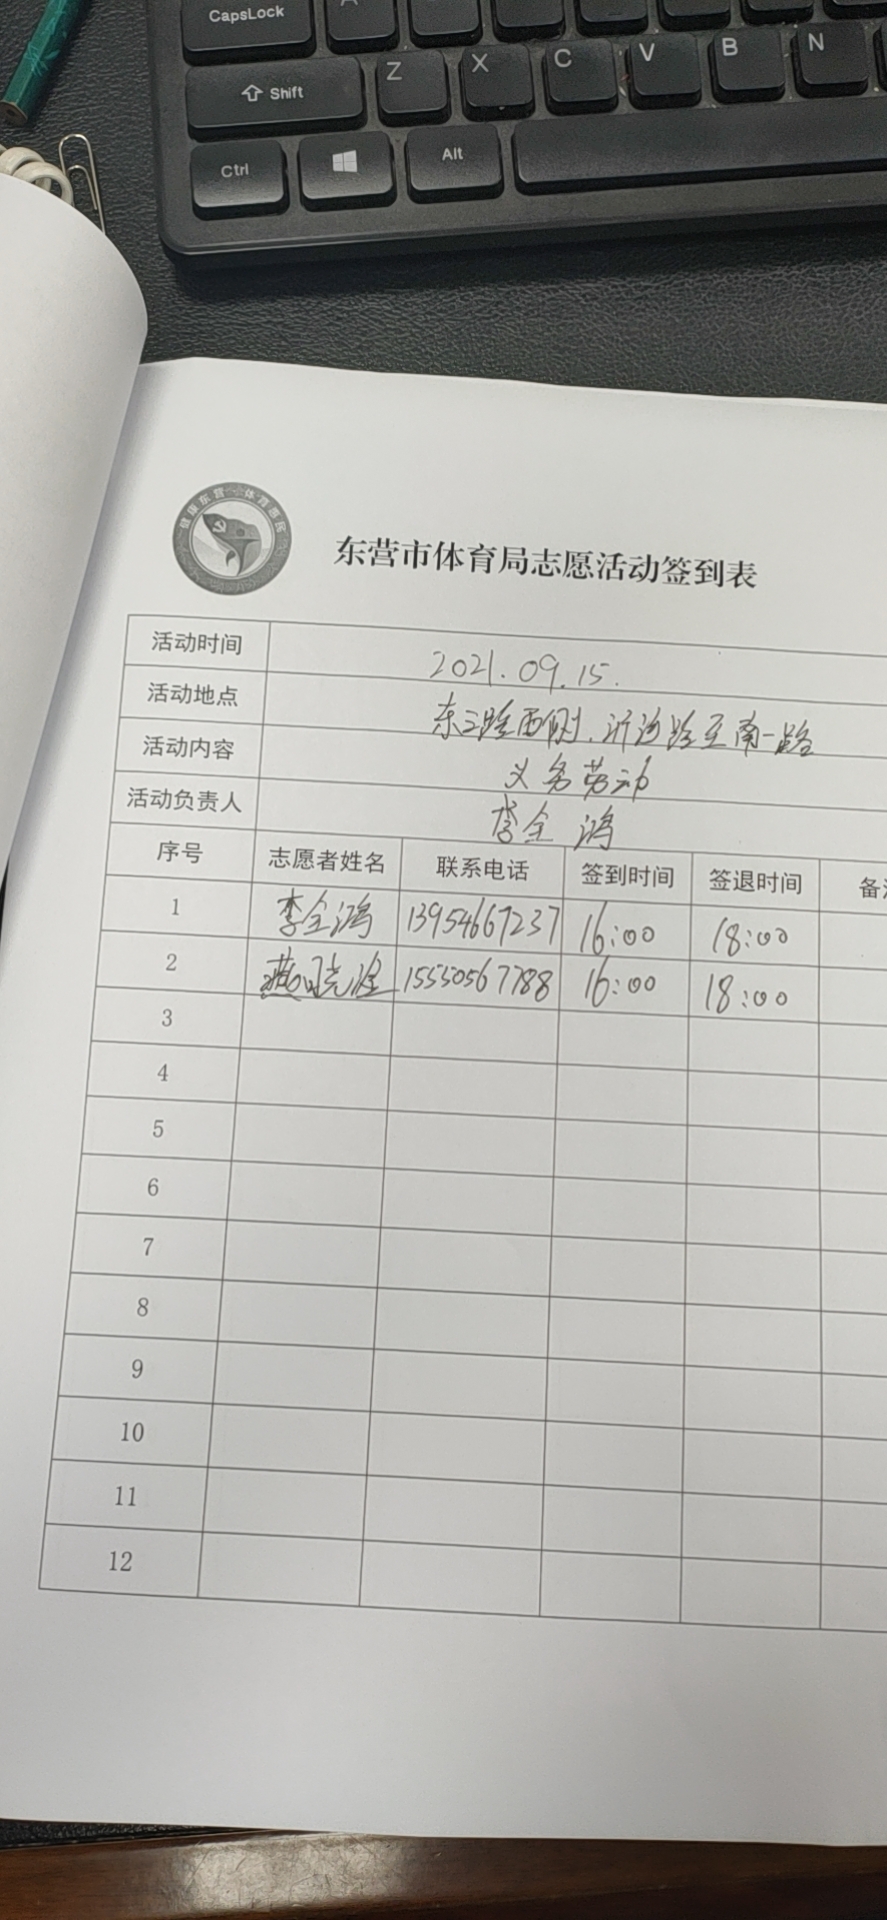 CapsLock A
Shift Z X C V B N
Ctrl Alt
健康东营 体育惠民
东营市体育局志愿活动签到表
活动时间 2021.09.15.
活动地点 东三路西侧.沂河路至南一路
活动内容 义务劳动
活动负责人 李全鸿
序号 志愿者姓名 联系电话 签到时间 签退时间 备
1 李全鸿 13954667237 16:00 18:00
2 燕晓 15550567788 16:00 18:00
3
4
5
6
7
8
9
10
11
12